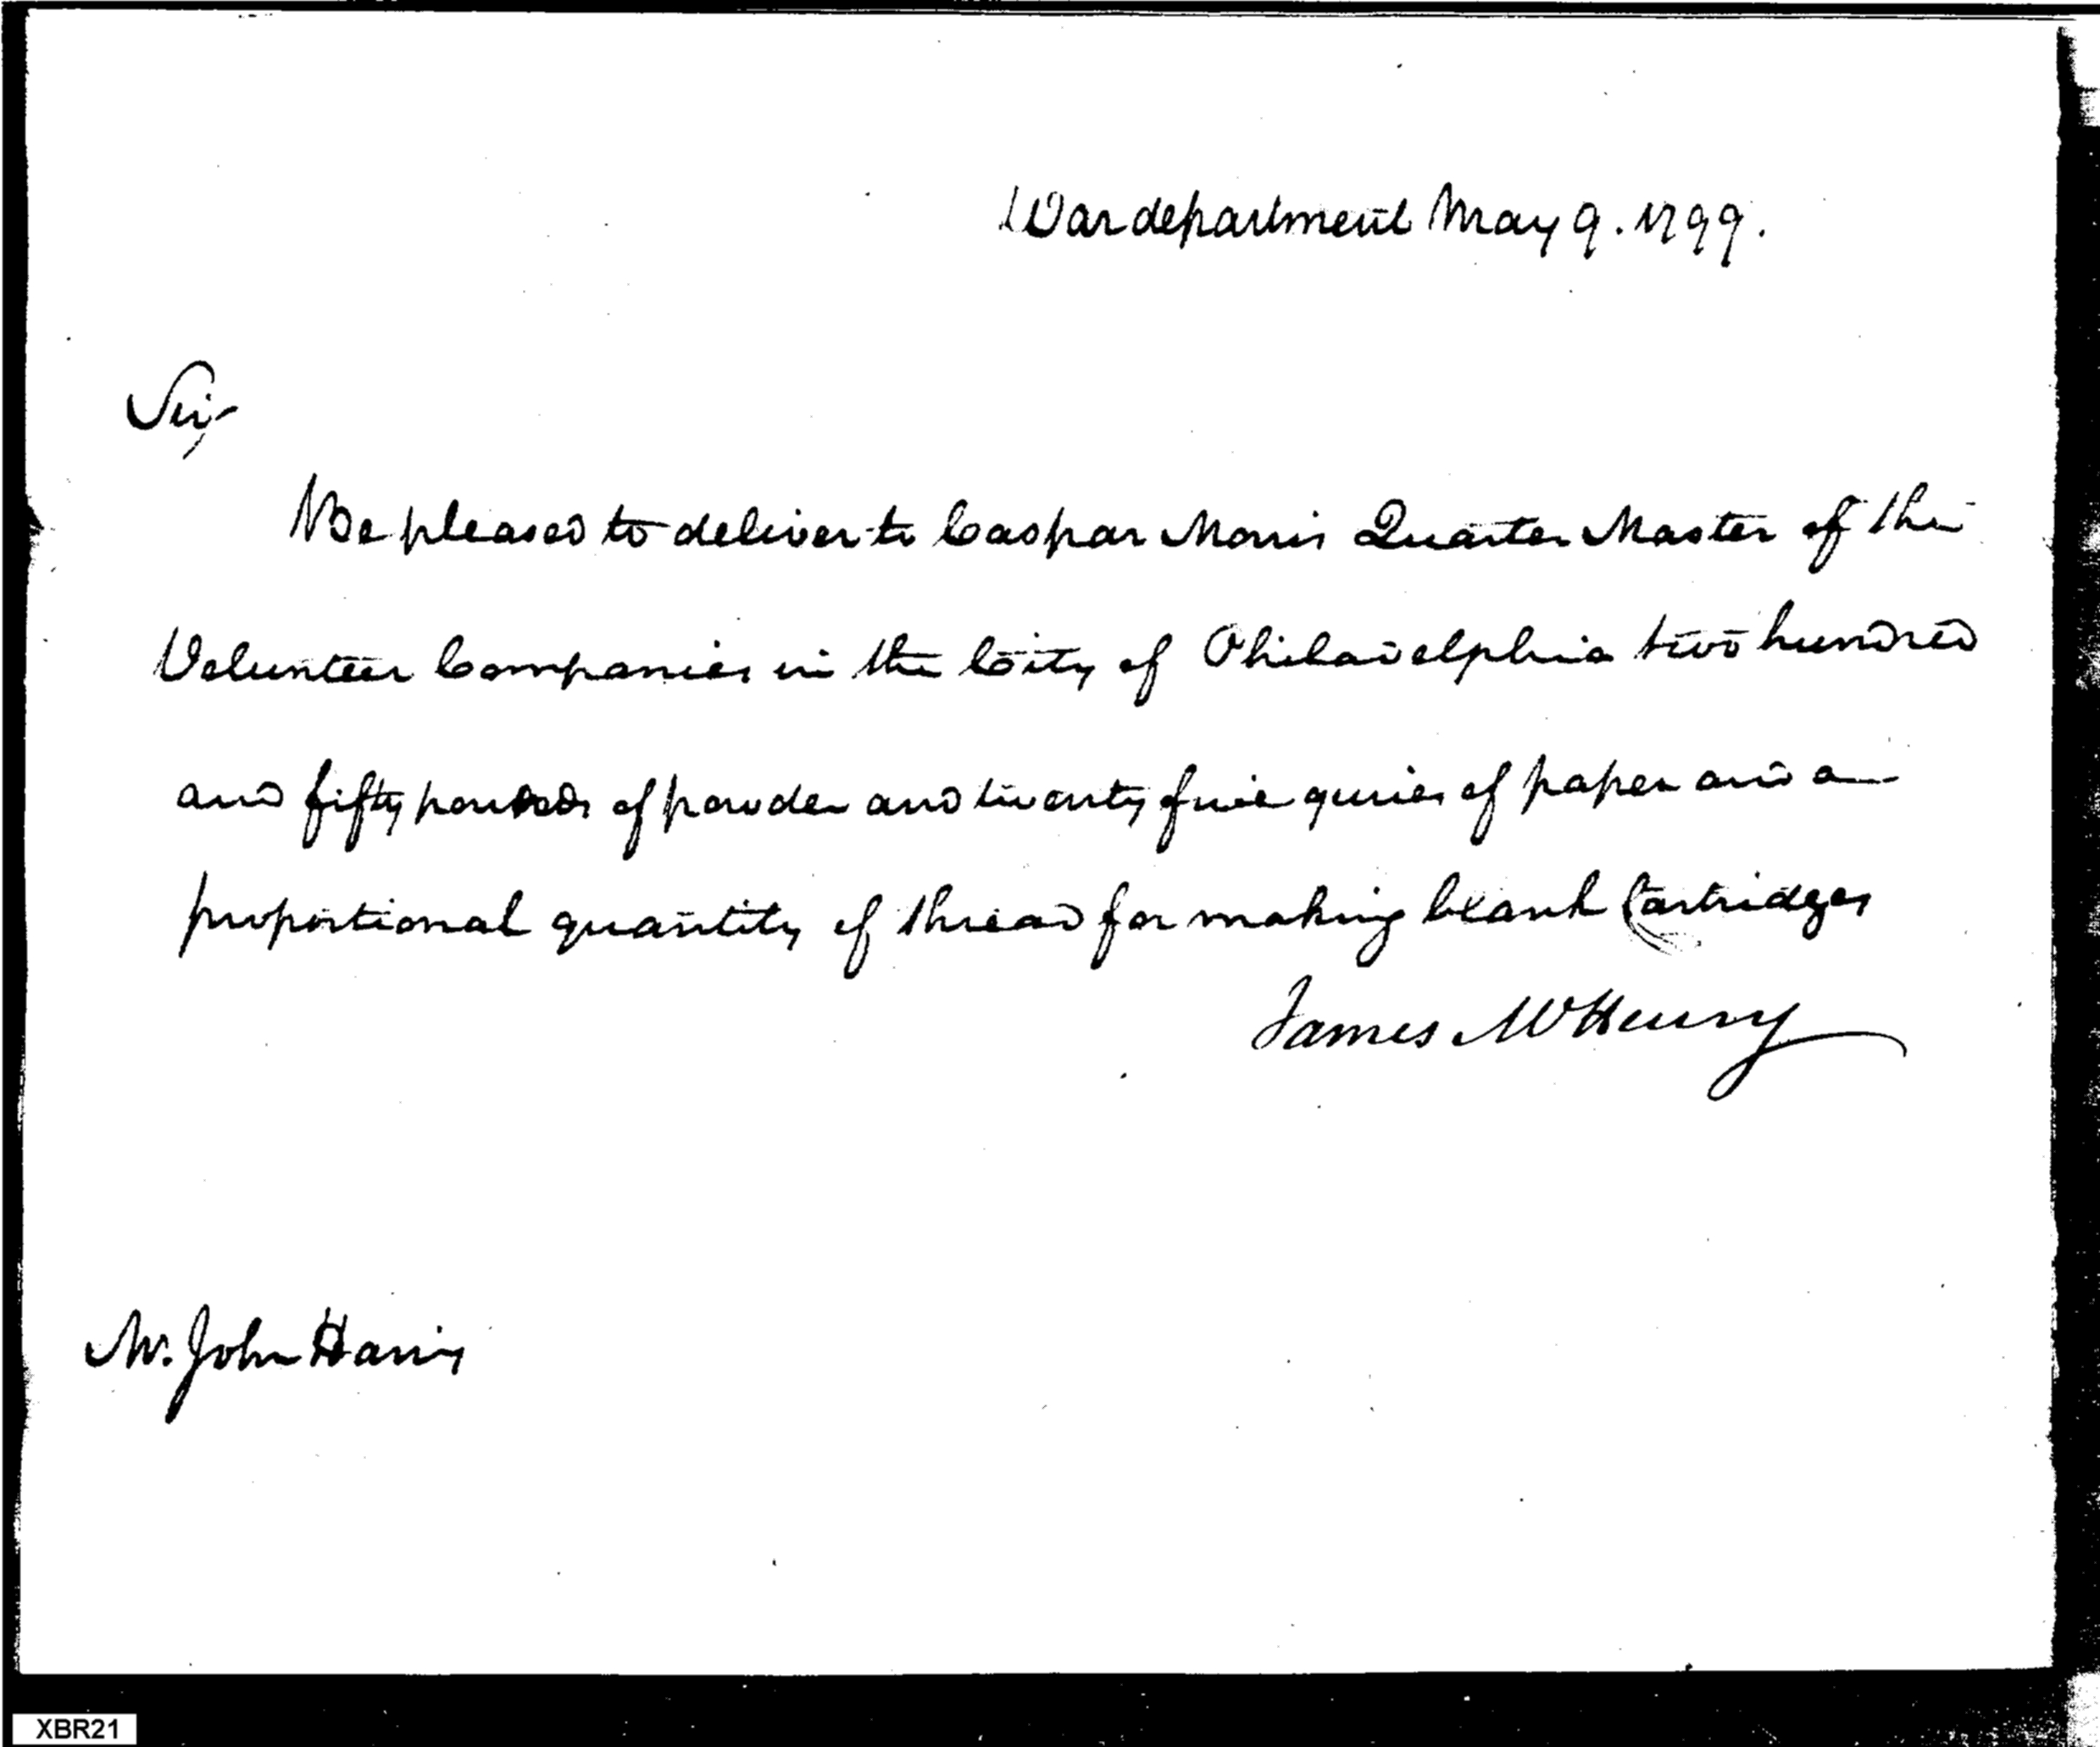 War department May 9. 1799.
Sir,
Be pleased to deliver to Caspar Morris Quarter Master of the
Volunteer Companies in the City of Philadelphia two hundred
and fifty pounds of powder and twenty five quires of paper and a
proportional quantity of thread for making blank Cartridges
James McHenry
Mr. John Harris
XBR21